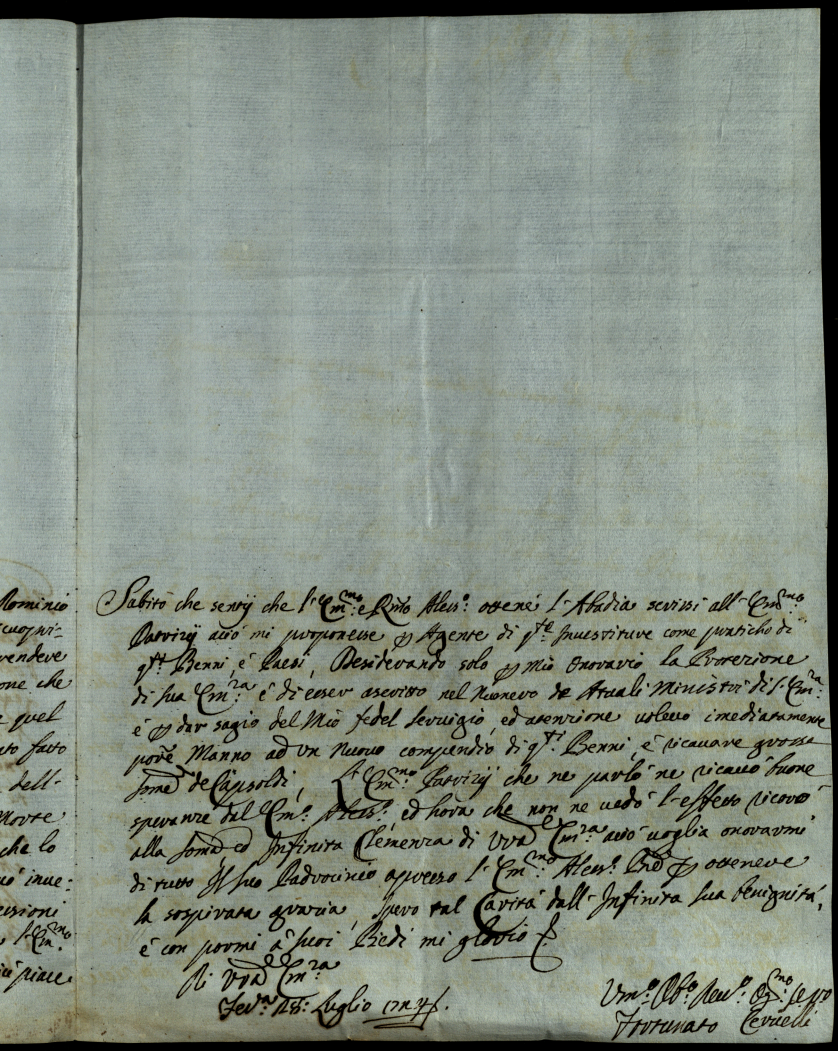 Subito che sentij che l'Em.mo e R.mo Aless.o ottené l'Abadia scrissi all'Em.mo
Patrizij acciò mi proponesse p Agente di q.te Investiture come pratticho di
q.ti Benni, é Paesi, Desiderando solo p mio onorario la Protezione
di sua Em.za é di esser ascritto nel Numero de Atuali Ministri di S. Em.za
é p dar sagio del Mio fedel servigio, ed atenzione volevo imediatamente
porre Manno ad un Nuovo compendio di q.ti Benni é ricavare grossa
soma de Capsoldi, L'Em.mo Patrizij che ne parlò ne ricavò buone
speranze dal Em.o Aless.o, ed hora che non ne vedo l'effetto ricorro
alla soma ed Infinita Clemenza di Vra Em.za acciò voglia onorarmi
di tutto Il suo Padrocinio apresso l'Em.mo Aless.o p ottenere
la sospirata grazia, spero tal Carità dall'Infinita sua benignità,
é con pormi a' suoi Piedi mi glorio
Di Vra Em.za
Fer.ra 28: Luglio
Um.o Ob.o Seruo
Fortunato Cervelli
Dominio
vendere
one che
e quel
ato fatto
dell-
Morte
che lo
inue:
S. Em.mo
piace